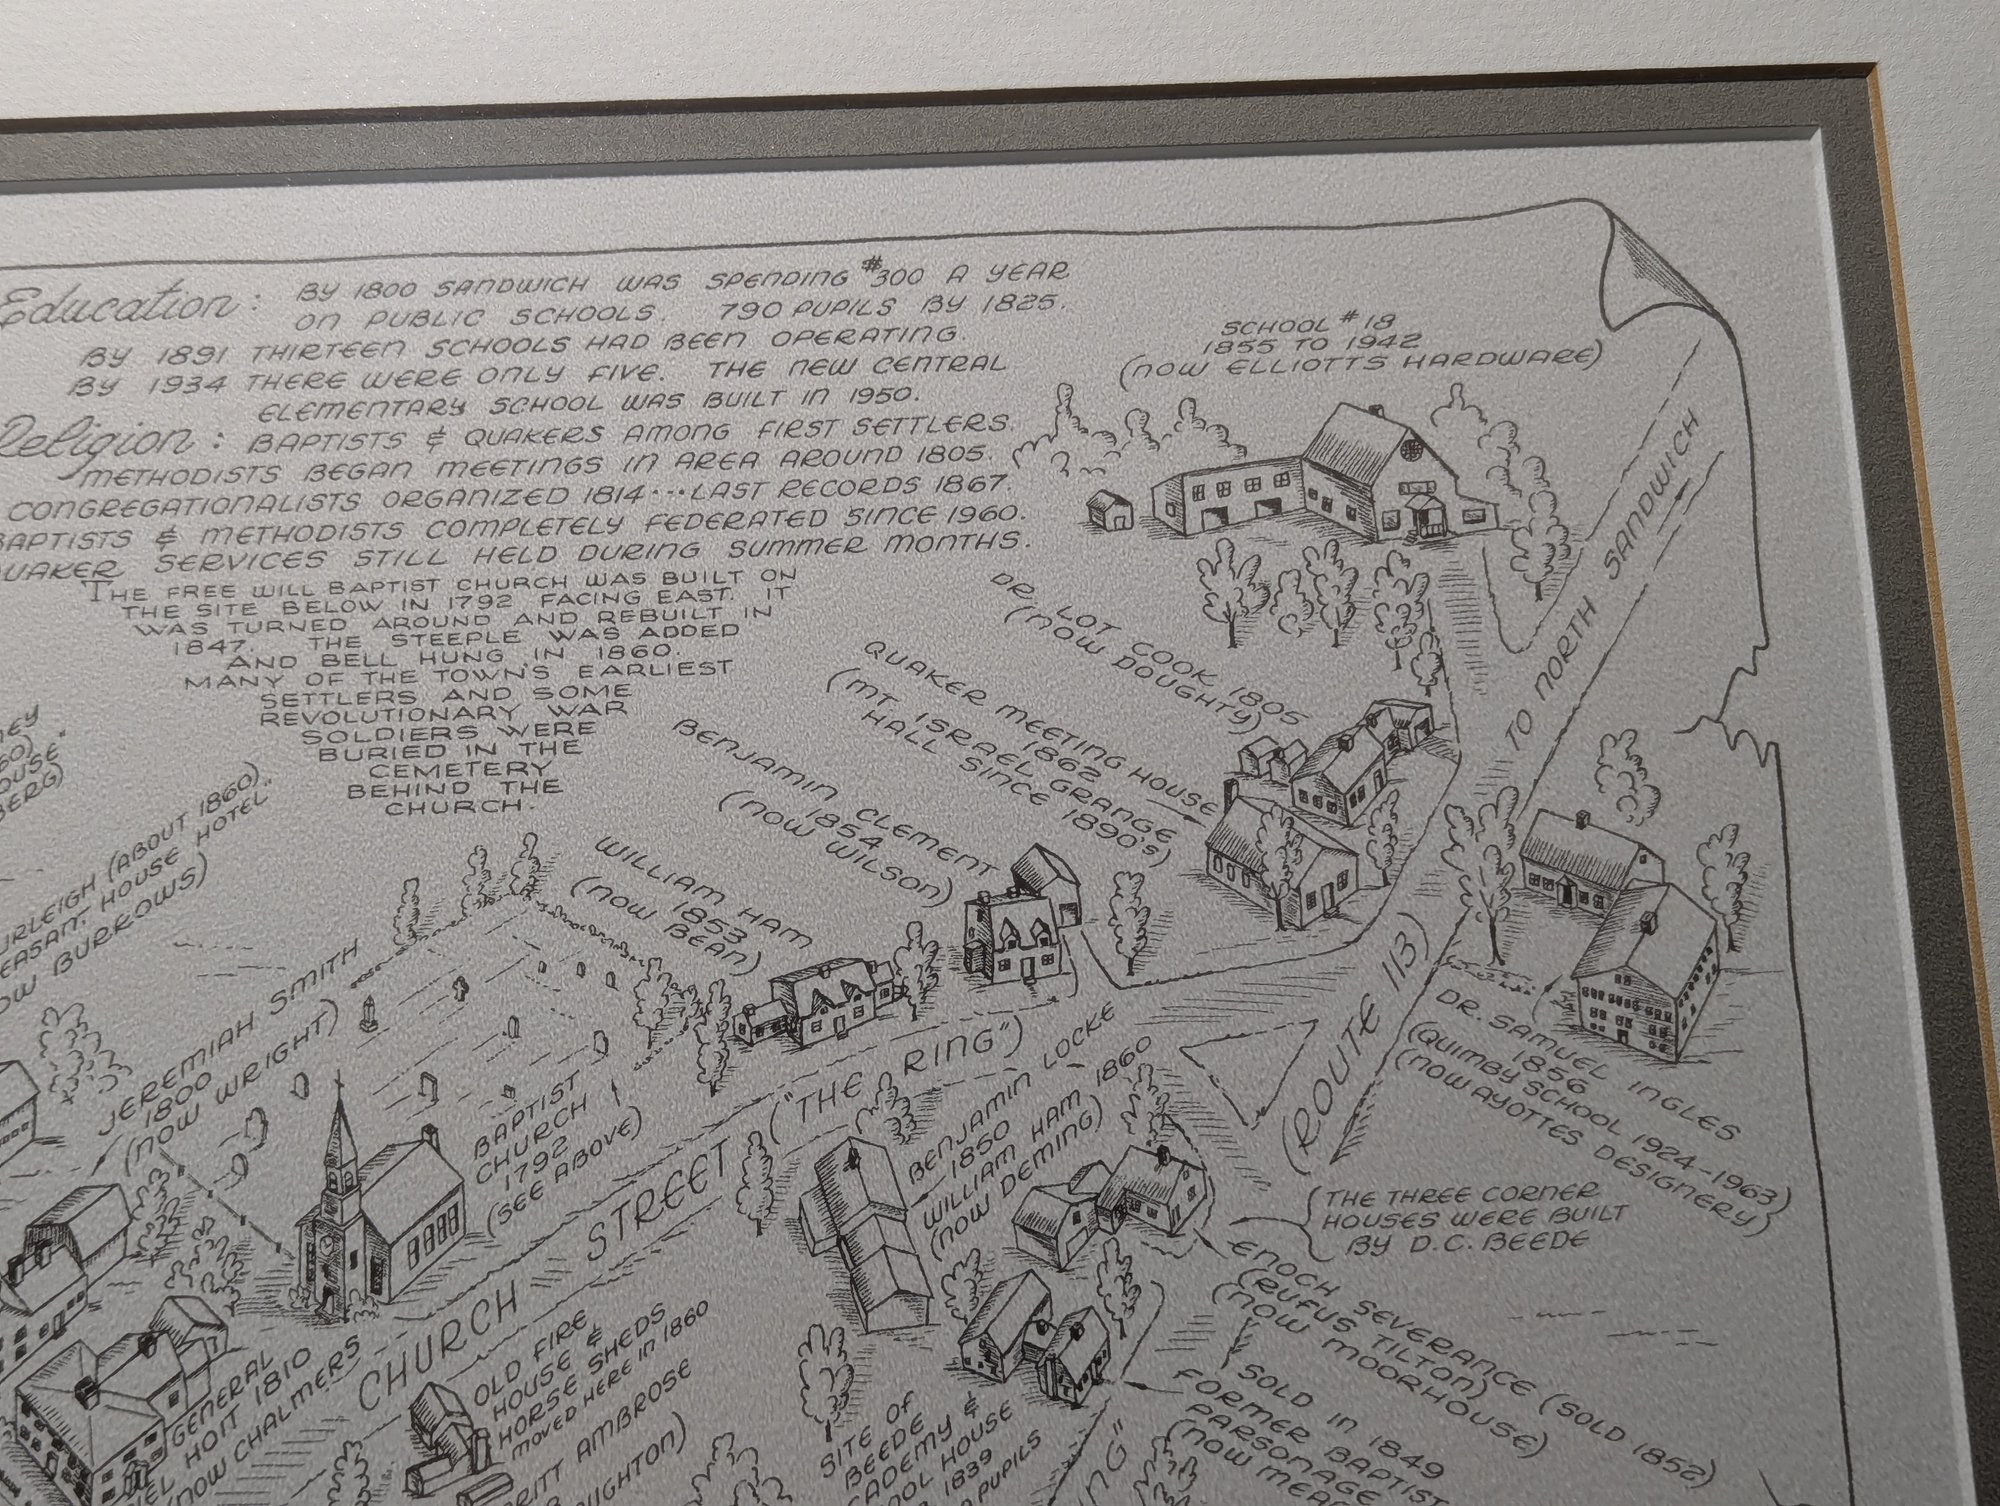 Education: BY 1800 SANDWICH WAS SPENDING #300 A YEAR
ON PUBLIC SCHOOLS. 790 PUPILS BY 1825.
BY 1891 THIRTEEN SCHOOLS HAD BEEN OPERATING.
BY 1934 THERE WERE ONLY FIVE. THE NEW CENTRAL
ELEMENTARY SCHOOL WAS BUILT IN 1950.
Religion: BAPTISTS & QUAKERS AMONG FIRST SETTLERS.
METHODISTS BEGAN MEETINGS IN AREA AROUND 1805.
CONGREGATIONALISTS ORGANIZED 1814...LAST RECORDS 1867.
BAPTISTS & METHODISTS COMPLETELY FEDERATED SINCE 1960.
QUAKER SERVICES STILL HELD DURING SUMMER MONTHS.
THE FREE WILL BAPTIST CHURCH WAS BUILT ON
THE SITE BELOW IN 1792 FACING EAST. IT
WAS TURNED AROUND AND REBUILT IN
1847. THE STEEPLE WAS ADDED
AND BELL HUNG IN 1860.
MANY OF THE TOWN'S EARLIEST
SETTLERS AND SOME
REVOLUTIONARY WAR
SOLDIERS WERE
BURIED IN THE
CEMETERY
BEHIND THE
CHURCH.
SCHOOL #18
1855 TO 1942
(NOW ELLIOTTS HARDWARE)
TO NORTH SANDWICH
DR. LOT COOK 1805
(NOW DOUGHTY)
QUAKER MEETING HOUSE
1862
(MT. ISRAEL GRANGE
HALL SINCE 1890'S)
BENJAMIN CLEMENT
1854
(NOW WILSON)
WILLIAM HAM
1853
(NOW BEAN)
(ABOUT 1860)
HOUSE HOTEL
BURROWS)
JEREMIAH SMITH
1800
(NOW WRIGHT)
BAPTIST
CHURCH
1792
(SEE ABOVE)
CHURCH STREET ("THE RING")
(ROUTE 113)
DR. SAMUEL INGLES
1856
(QUIMBY SCHOOL 1924-1963)
(NOW AYOTTES DESIGNERY)
BENJAMIN LOCKE
1850
WILLIAM HAM 1860
(NOW DEMING)
(THE THREE CORNER
HOUSES WERE BUILT
BY D.C. BEEDE
ENOCH SEVERANCE (SOLD 1852)
(RUFUS TILTON)
(NOW MOORHOUSE)
SOLD IN 1849
FORMER BAPTIST
PARSONAGE
(NOW
GENERAL
HOIT 1810
NOW CHALMERS
OLD FIRE
HOUSE &
HORSE SHEDS
MOVED HERE IN 1860
AMBROSE
SITE OF
BEEDE
ACADEMY &
HOUSE
1839
PUPILS